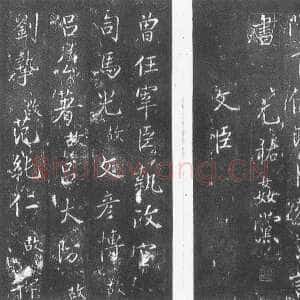 書 元祐姦黨
文臣
曾任宰臣執政官
司馬光故 文彥博故
呂公著故 呂大防故
劉摯故 范純仁故